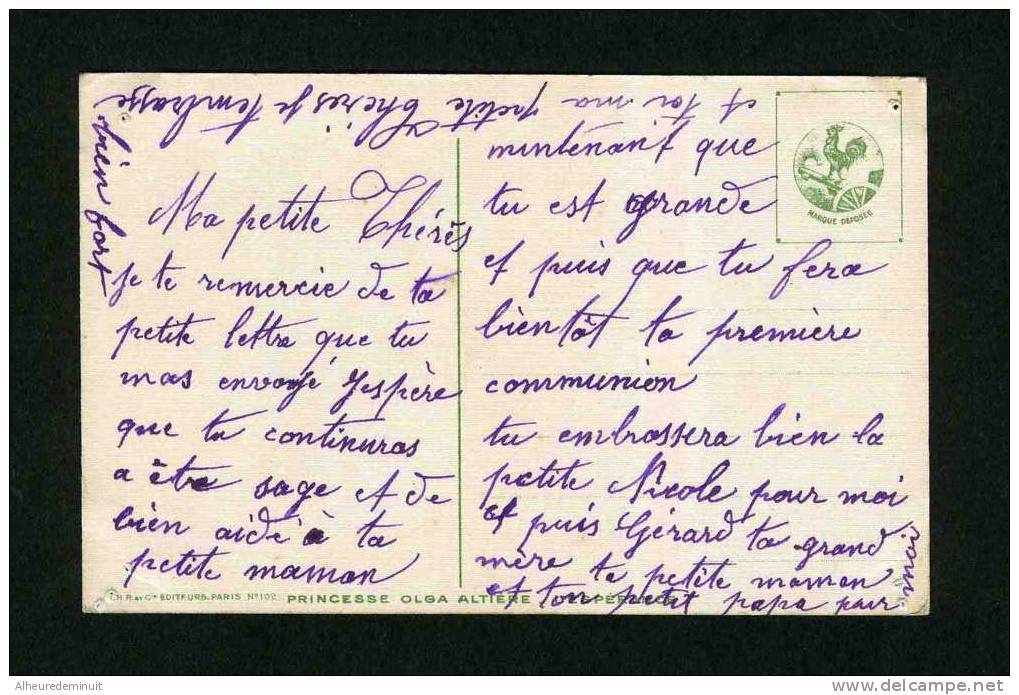 Ma petite Thérès
je te remercie de ta
petite lettre que tu
mas envoyé Jespère
que tu continuras
a ète sage et de
bien aidé à ta
petite maman
mintenant que
tu est grande
et puis que tu fera
bientôt ta première
communion
tu embrassera bien la
petite Nicole pour moi
et puis Gérard ta grand
mère te petite maman
et ton petit papa pour
moi
et toi ma petite Thérès je tembrasse
bien fort
MARQUE DÉPOSÉE
ÉDITEURS. PARIS N° 102 PRINCESSE OLGA ALTIÈRE
Alheuredeminuit
delcampe.net